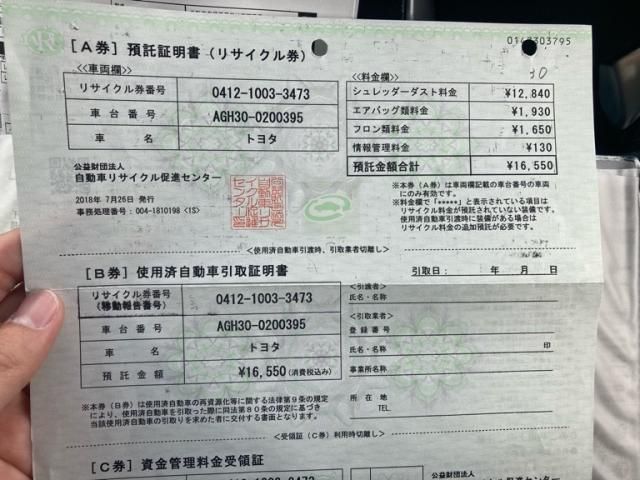 0142303795
[A券] 預託証明書(リサイクル券)
30
≪車両欄≫
リサイクル券番号 0412-1003-3473
車台番号 AGH30-0200395
車名 トヨタ
≪料金欄≫
シュレッダーダスト料金 ¥12,840
エアバッグ類料金 ¥1,930
フロン類料金 ¥1,650
情報管理料金 ¥130
預託金額合計 ¥16,550
公益財団法人
自動車リサイクル促進センター
2018年 7月26日 発行
事務処理番号:004-1810198 <1S>
※本券(A券)は車両欄記載の車台番号の車両
にのみ有効です。
※料金欄で「*****」と表示されている項目は
リサイクル料金が預託されていない装備です。
使用済自動車引渡時に装備がある場合は
リサイクル料金の追加預託が必要です。
<使用済自動車引渡時、引取業者切離し>
[B券] 使用済自動車引取証明書
引取日: 年 月 日
リサイクル券番号
(移動報告番号) 0412-1003-3473
車台番号 AGH30-0200395
車名 トヨタ
預託金額 ¥16,550(消費税込み)
<引渡者>
氏名・名称
<引取業者>
登録番号
氏名・名称 印
事業所名称
所在地
TEL.
※本券(B券)は使用済自動車の再資源化等に関する法律第9条の規定
により、使用済自動車を引取った際に同法第80条の規定に基づき
当該使用済自動車の引取りを求めた者に交付する書面となります。
<受領証(C券)利用時切離し>
[C券] 資金管理料金受領証
公益財団法人
0412-1003-3473